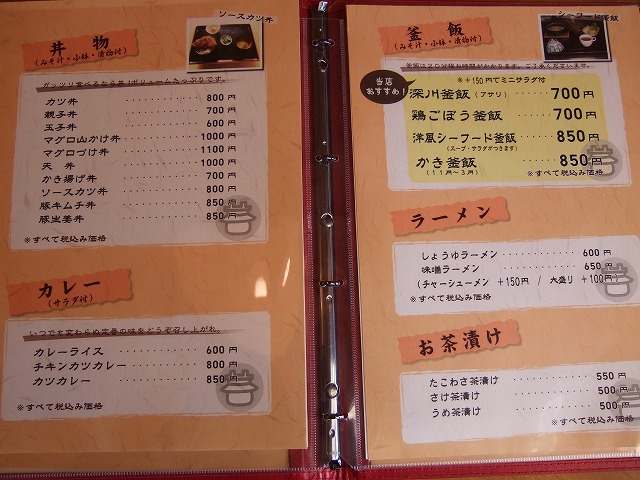 ソースカツ丼
丼物
(みそ汁・小鉢・漬物付)
ガッツリ食べるなら丼!ボリュームたっぷりです。
カツ丼 ・・・・・・・・・ 800円
親子丼 ・・・・・・・・・ 700円
玉子丼 ・・・・・・・・・ 600円
マグロ山かけ丼 ・・・・・ 1000円
マグロづけ丼 ・・・・・・ 1100円
天丼 ・・・・・・・・・ 1000円
かき揚げ丼 ・・・・・・・ 700円
ソースカツ丼 ・・・・・・ 800円
豚キムチ丼 ・・・・・・・ 850円
豚生姜丼 ・・・・・・・・ 850円
※すべて税込み価格
カレー
(サラダ付)
いつでも変わらぬ定番の味をどうぞ召し上がれ。
カレーライス ・・・・・・ 600円
チキンカツカレー ・・・・ 800円
カツカレー ・・・・・・・ 850円
※すべて税込み価格
シーフード釜飯
釜飯
(みそ汁・小鉢・漬物付)
釜飯は20分程お時間がかかります。ご了承くださいませ。
当店おすすめ!
※+150円でミニサラダ付
深川釜飯(アサリ) ・・・・ 700円
鶏ごぼう釜飯 ・・・・・・ 700円
洋風シーフード釜飯 ・・・ 850円
(スープ・サラダがつきます)
かき釜飯 ・・・・・・・・ 850円
(11月〜3月)
※すべて税込み価格
ラーメン
しょうゆラーメン ・・・・・・ 600円
味噌ラーメン ・・・・・・・ 650円
(チャーシューメン +150円 / 大盛り +100円)
※すべて税込み価格
お茶漬け
たこわさ茶漬け ・・・・・・ 550円
さけ茶漬け ・・・・・・・・ 500円
うめ茶漬け ・・・・・・・・ 500円
※すべて税込み価格